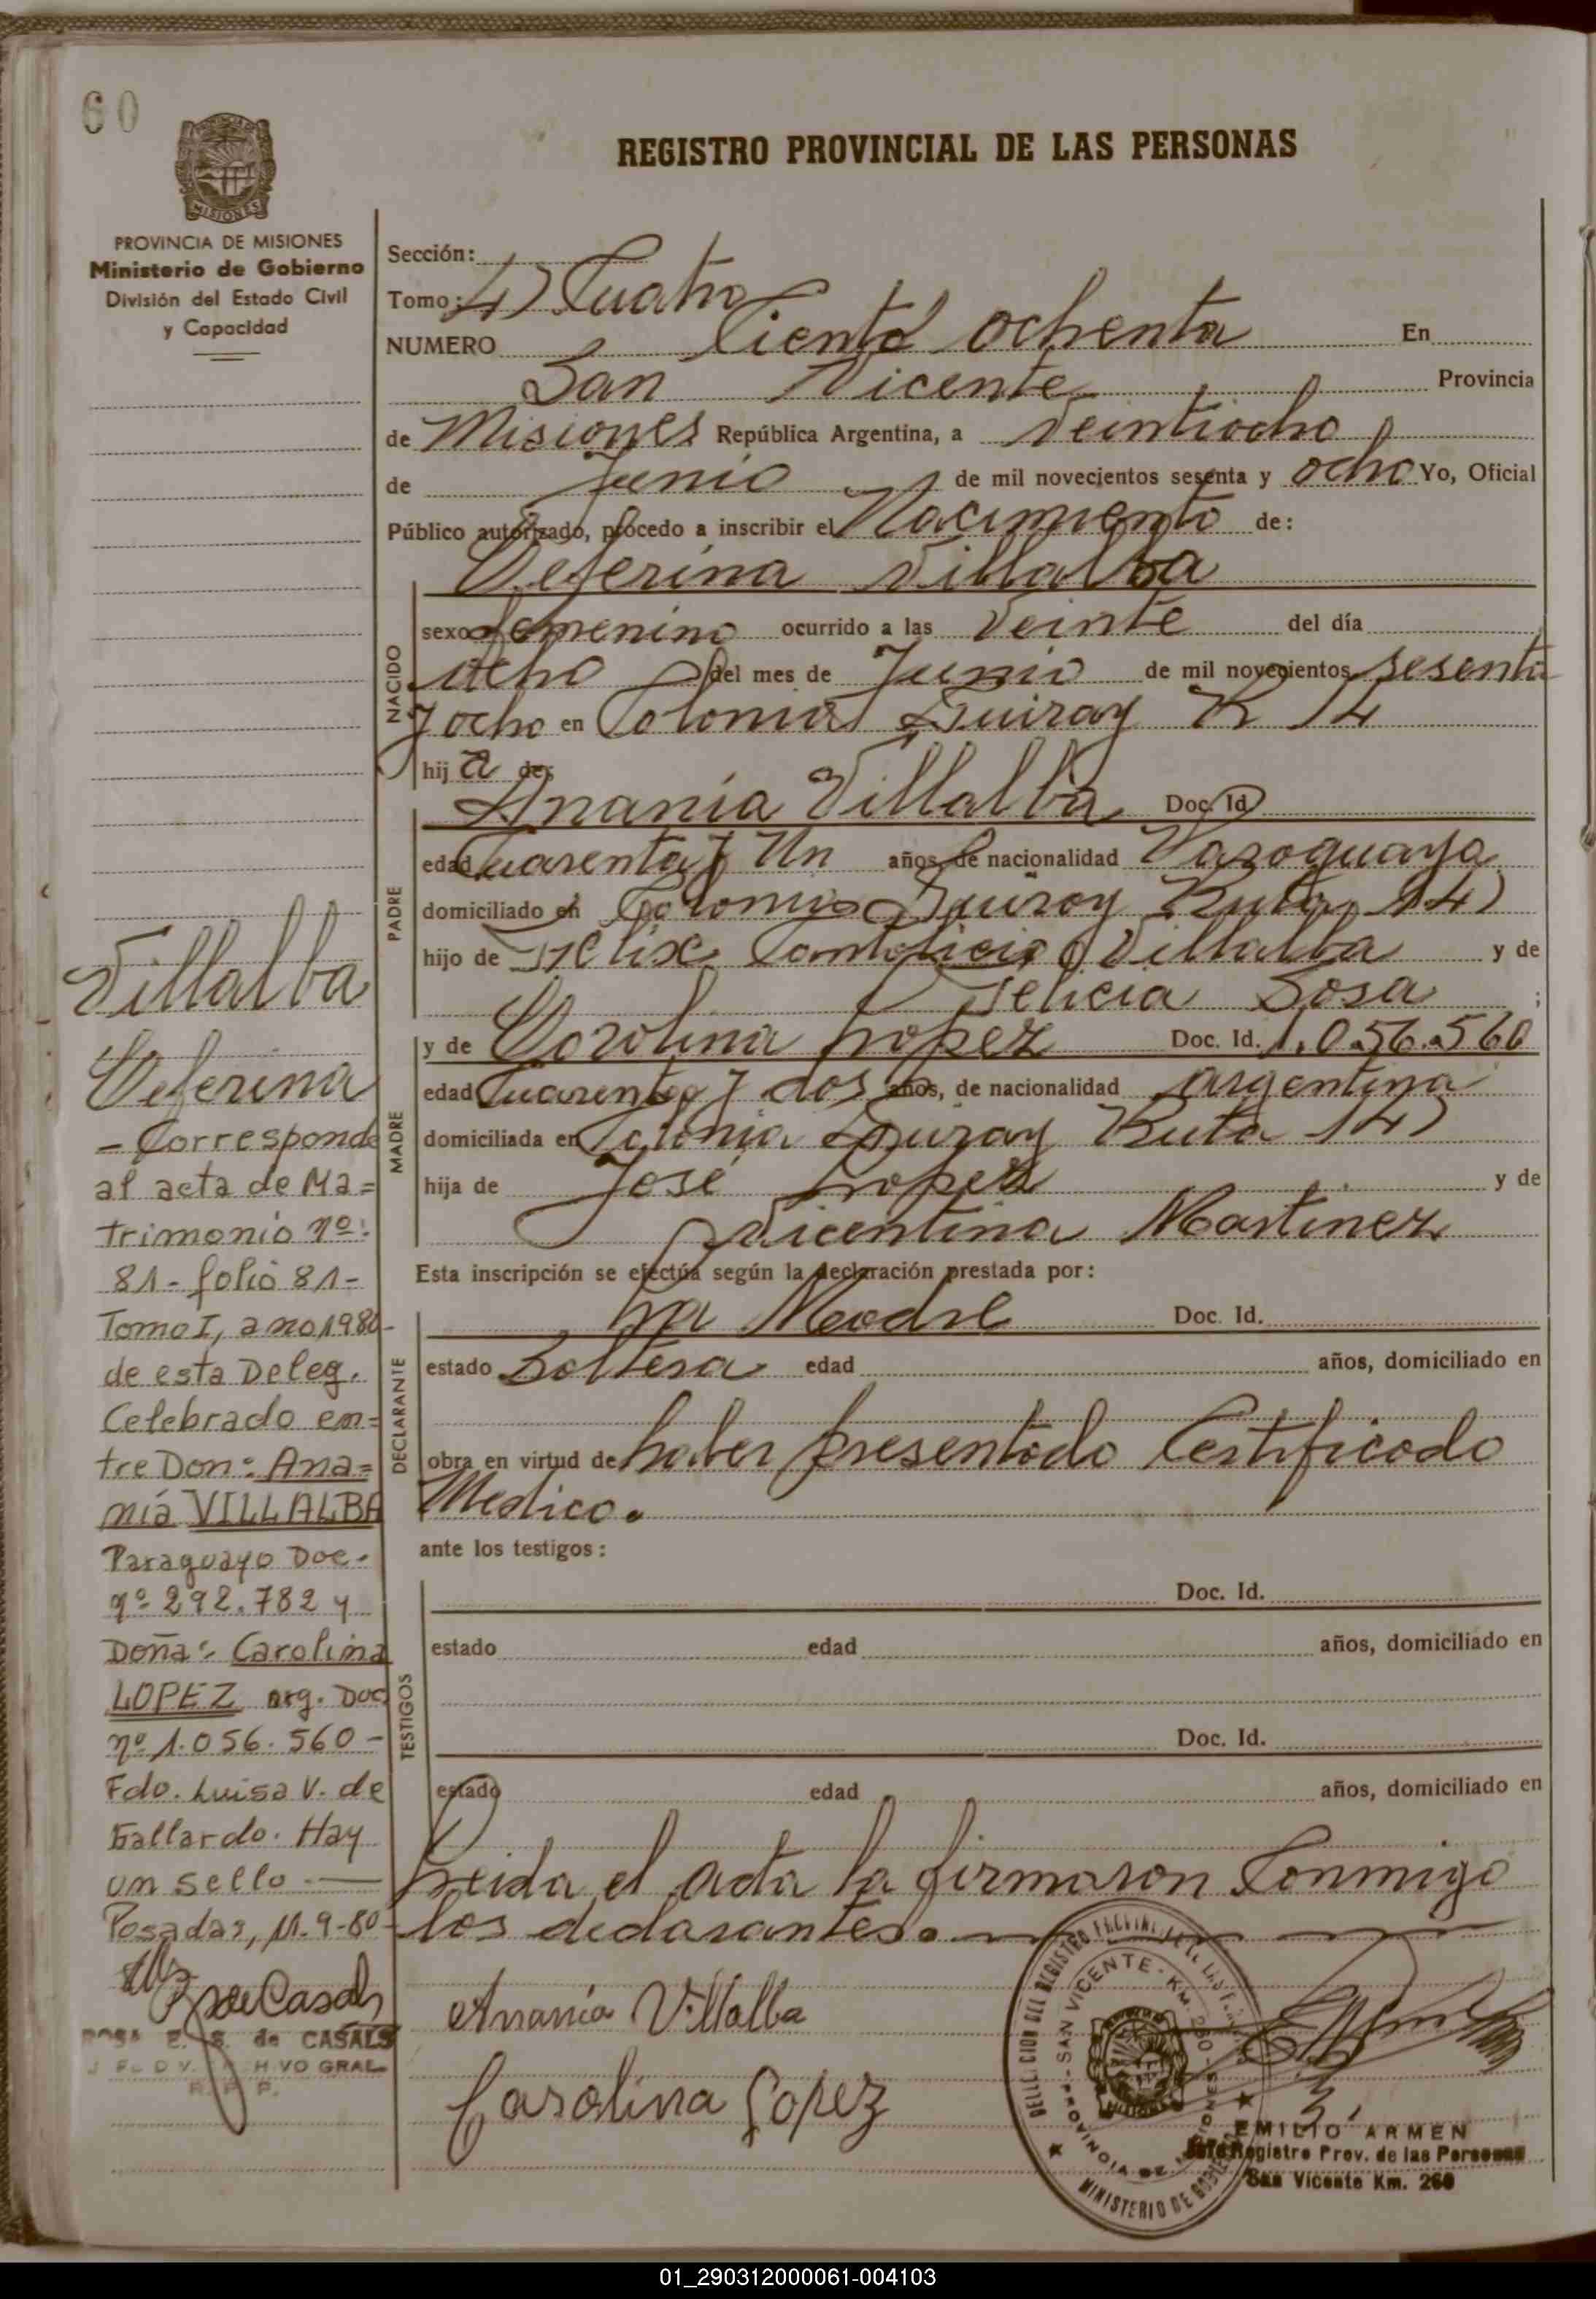 60
MISIONES
PROVINCIA DE MISIONES
Ministerio de Gobierno
División del Estado Civil
y Capacidad
REGISTRO PROVINCIAL DE LAS PERSONAS
Sección:
Tomo: 4) Cuatro
NUMERO Ciento ochenta En
San Vicente Provincia
de Misiones República Argentina, a Veintiocho
de Junio de mil novecientos sesenta y ocho Yo, Oficial
Público autorizado, procedo a inscribir el Nacimiento de:
Ceferina Villalba
NACIDO
sexo femenino ocurrido a las Veinte del día
ocho del mes de Junio de mil novecientos sesenta
y ocho en Colonia Guiray R 14
hij a de:
PADRE
Anania Villalba Doc. Id.
edad Cuarenta y Un años, de nacionalidad Paraguaya
domiciliado en Colonia Guiray Ruta 14)
hijo de Felix Villalba y de
Felicia Sosa ;
MADRE
y de Carolina Lopez Doc. Id. 1.056.560
edad Cuarenta y dos años, de nacionalidad argentina
domiciliada en Colonia Guiray Ruta 14)
hija de José Lopez y de
Vicentina Martinez
Esta inscripción se efectúa según la declaración prestada por:
DECLARANTE
La Madre Doc. Id.
estado Soltera edad años, domiciliado en
obra en virtud de haber presentado Certificado
Medico.
ante los testigos:
TESTIGOS
Doc. Id.
estado edad años, domiciliado en
Doc. Id.
estado edad años, domiciliado en
Leida el acta la firmaron Conmigo
los declarantes.
Anania Villalba
Carolina Lopez
SAN VICENTE - KM. 260 - PROVINCIA DE MISIONES
MINISTERIO DE GOBIERNO
EMILIO ARMEN
Jefe Registro Prov. de las Personas
San Vicente Km. 260
Villalba
Ceferina
- Corresponde
al acta de Ma=
trimonio nº:
81- folio 81-
Tomo I, ano 1980-
de esta Deleg.
Celebrado en=
tre Don: Ana=
nia VILLALBA
Paraguayo Doc.
nº 292.782 y
Doña: Carolina
LOPEZ arg. Doc
nº 1.056.560 -
Fdo. Luisa V. de
Gallardo. Hay
un sello.
Posadas, 11-9-80-
ROSA E. S. de CASALS
01_290312000061-004103